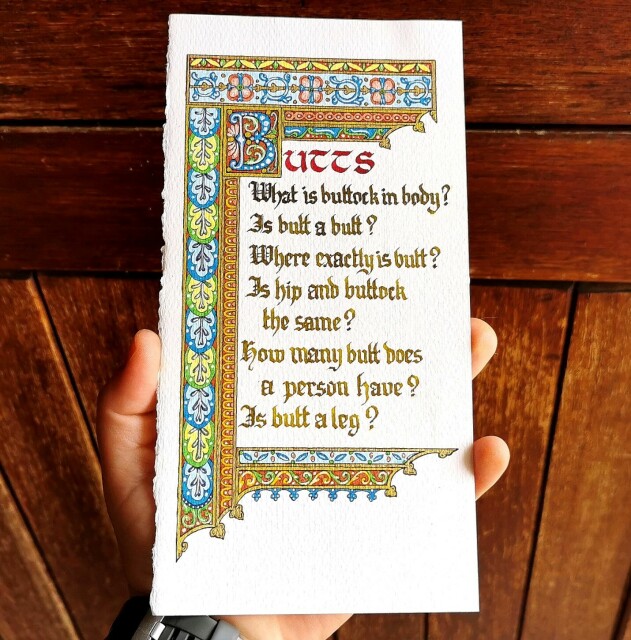 Butts
What is buttock in body?
Is butt a butt?
Where exactly is butt?
Is hip and buttock
the same?
How many butt does
a person have?
Is butt a leg?